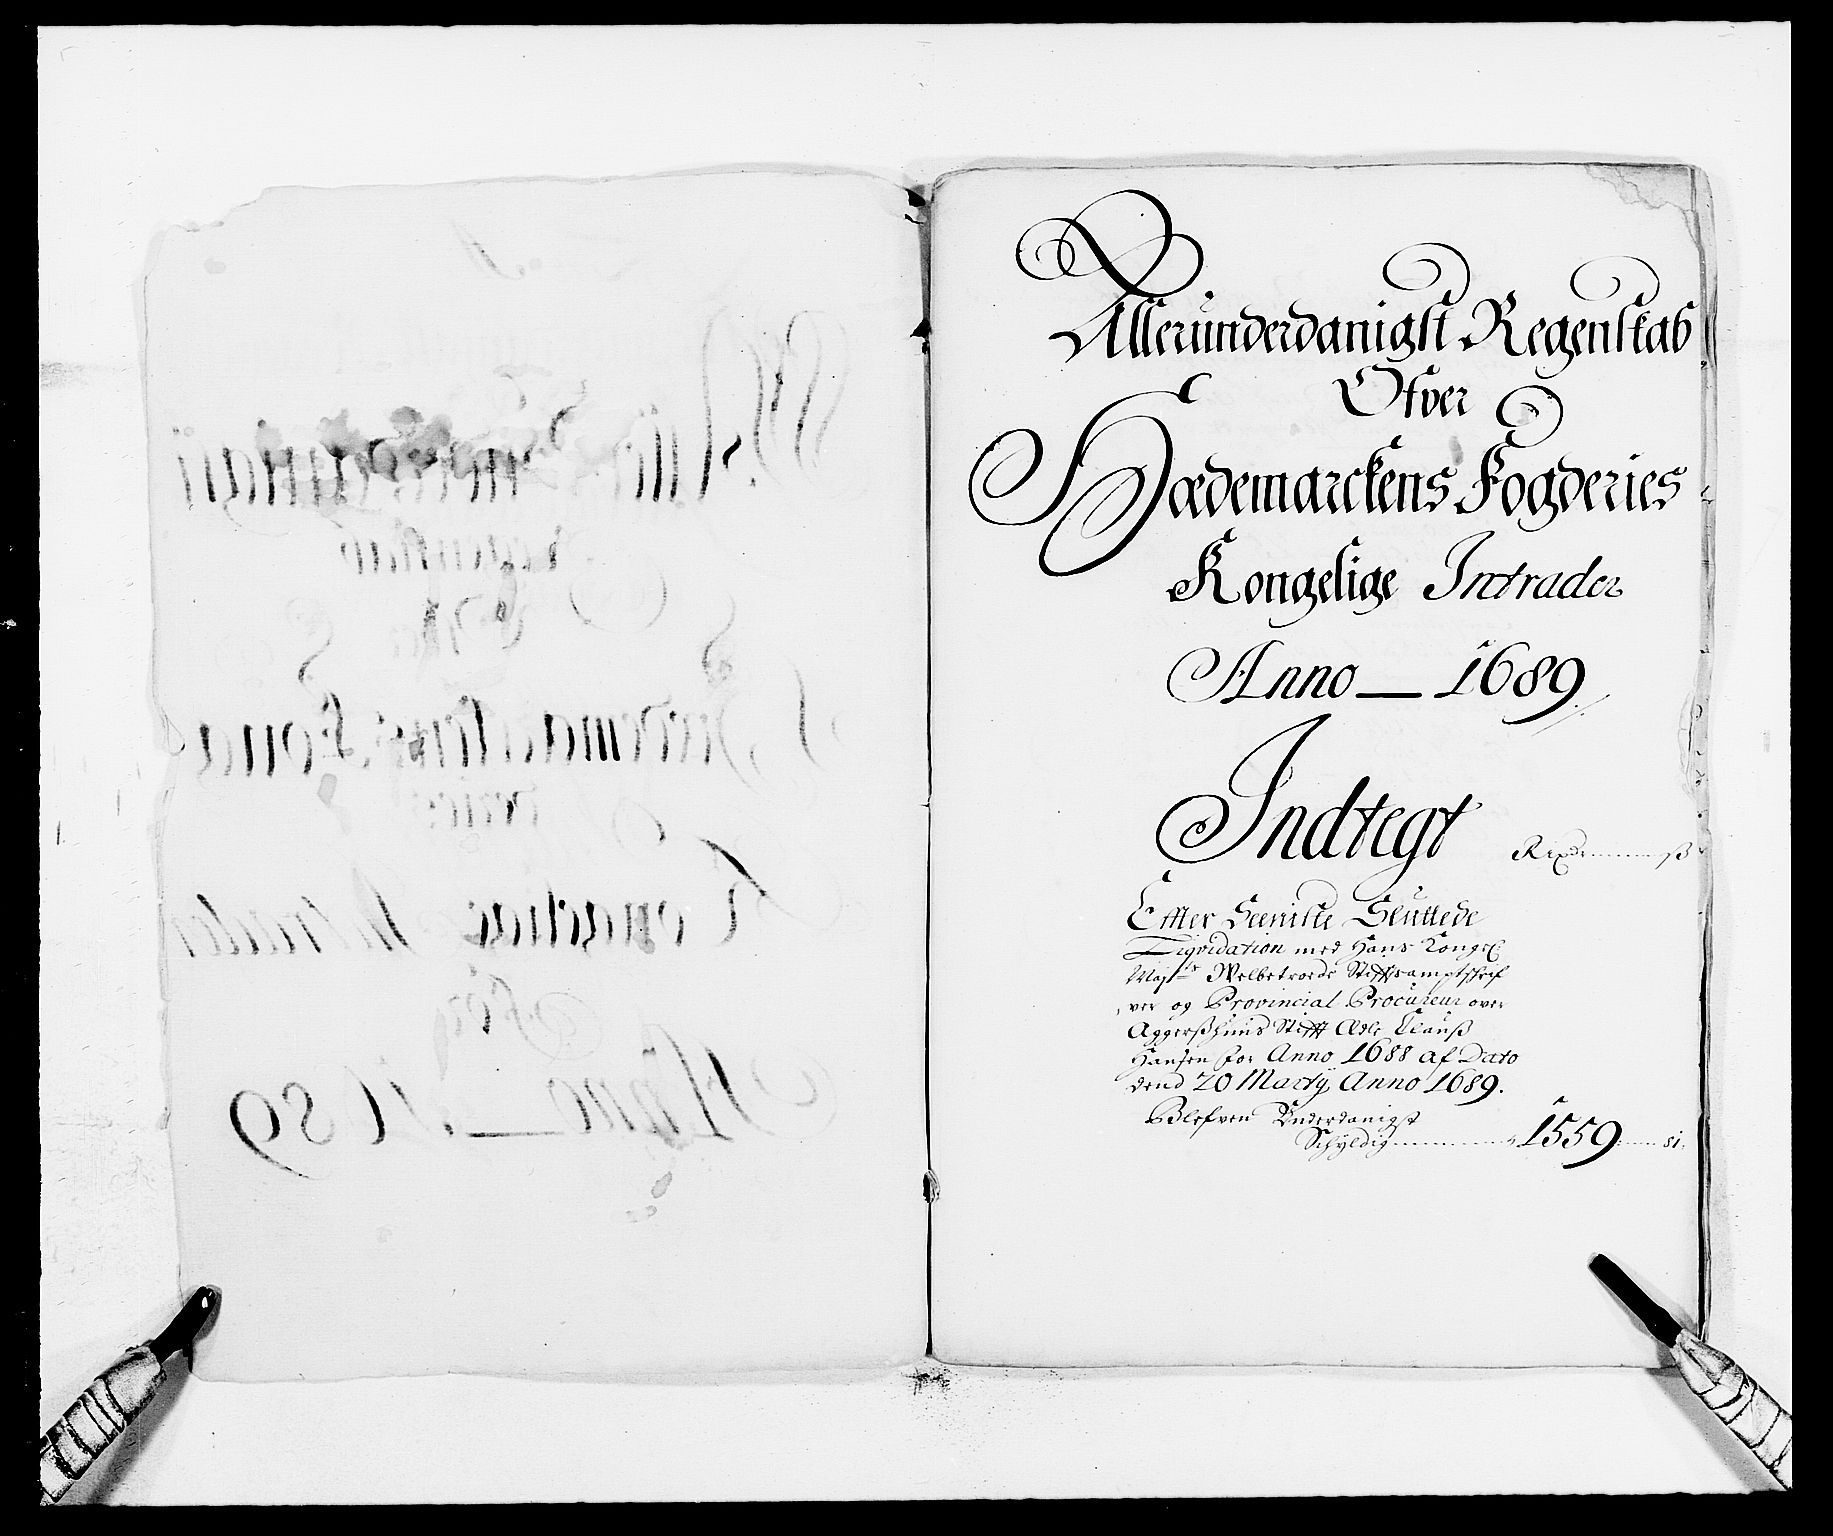 Allerunderdanigst Regenskab
Ofver
Hædemarckens Fogderies
Kongelige Intrader
Anno — 1689
Indtegt Rixdr ß
Effter Seeniste Sluttede
Liqvidation med Hans Kongel:
Majts Welbetroede Stifftsamptschrif
ver og Provincial Procureur over
Aggerßhuus Stifft Edle Clauß
Hansen for Anno 1688 af Dato
dend 20 Martÿ Anno 1689.
Blefven Underdanigst
Schyldig 1559 81